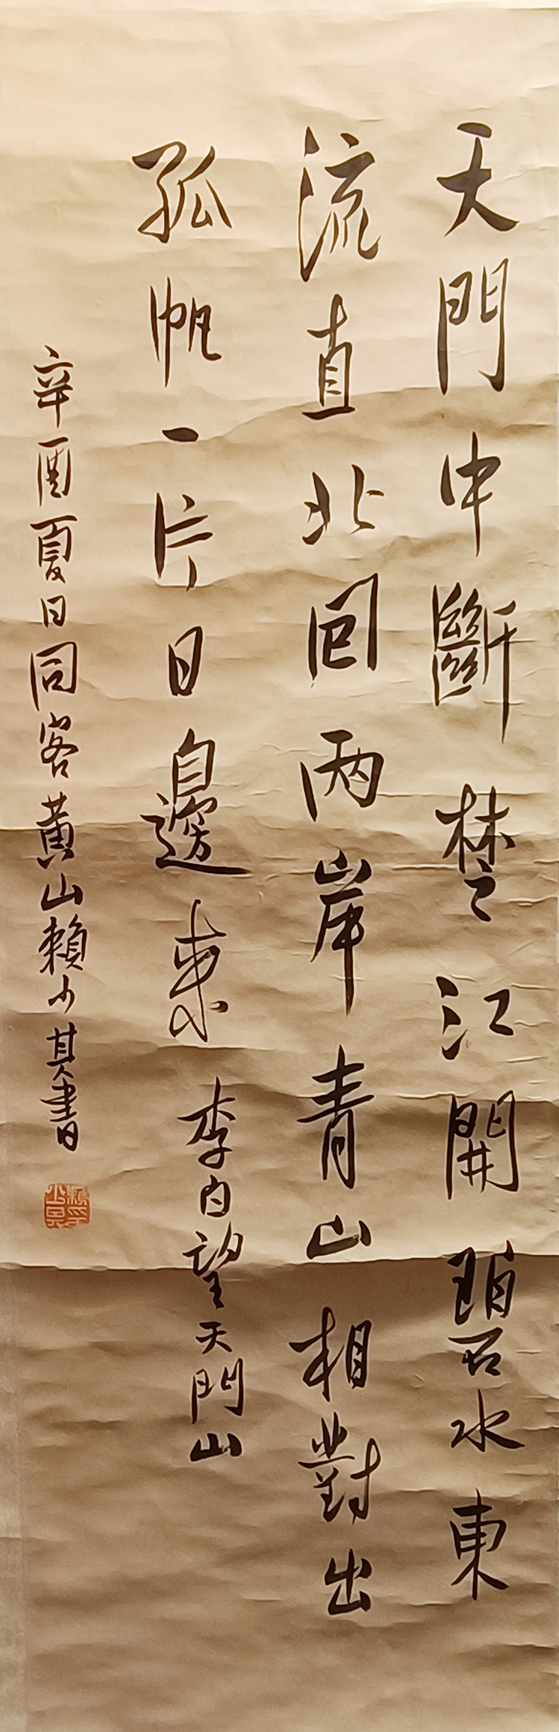 天門中斷楚江開碧水東
流直北回兩岸青山相對出
孤帆一片日邊來 李白望天門山
辛酉夏日同客黄山賴少其書